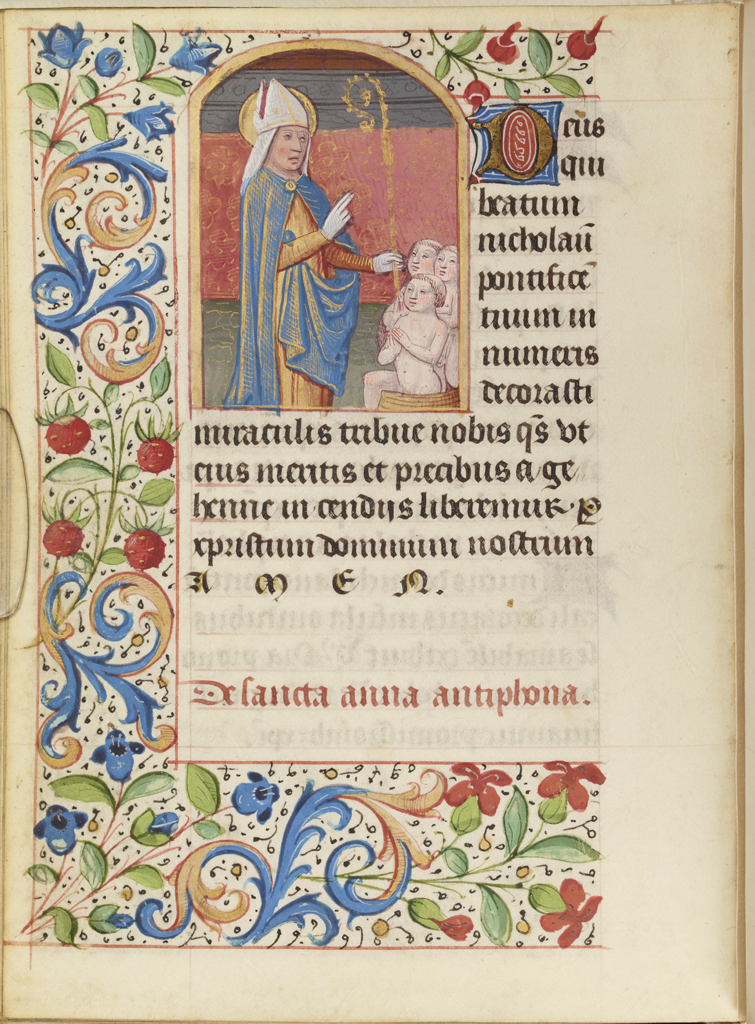 Deus
qui
beatum
nicholaū
pontificē
tuum in
numeris
decorasti
miraculis tribue nobis qs̄ vt
eius meritis et precibus a ge
henne in cendijs liberemur. P
xpristum dominum nostrum
A M E N.
De sancta anna antiphona.